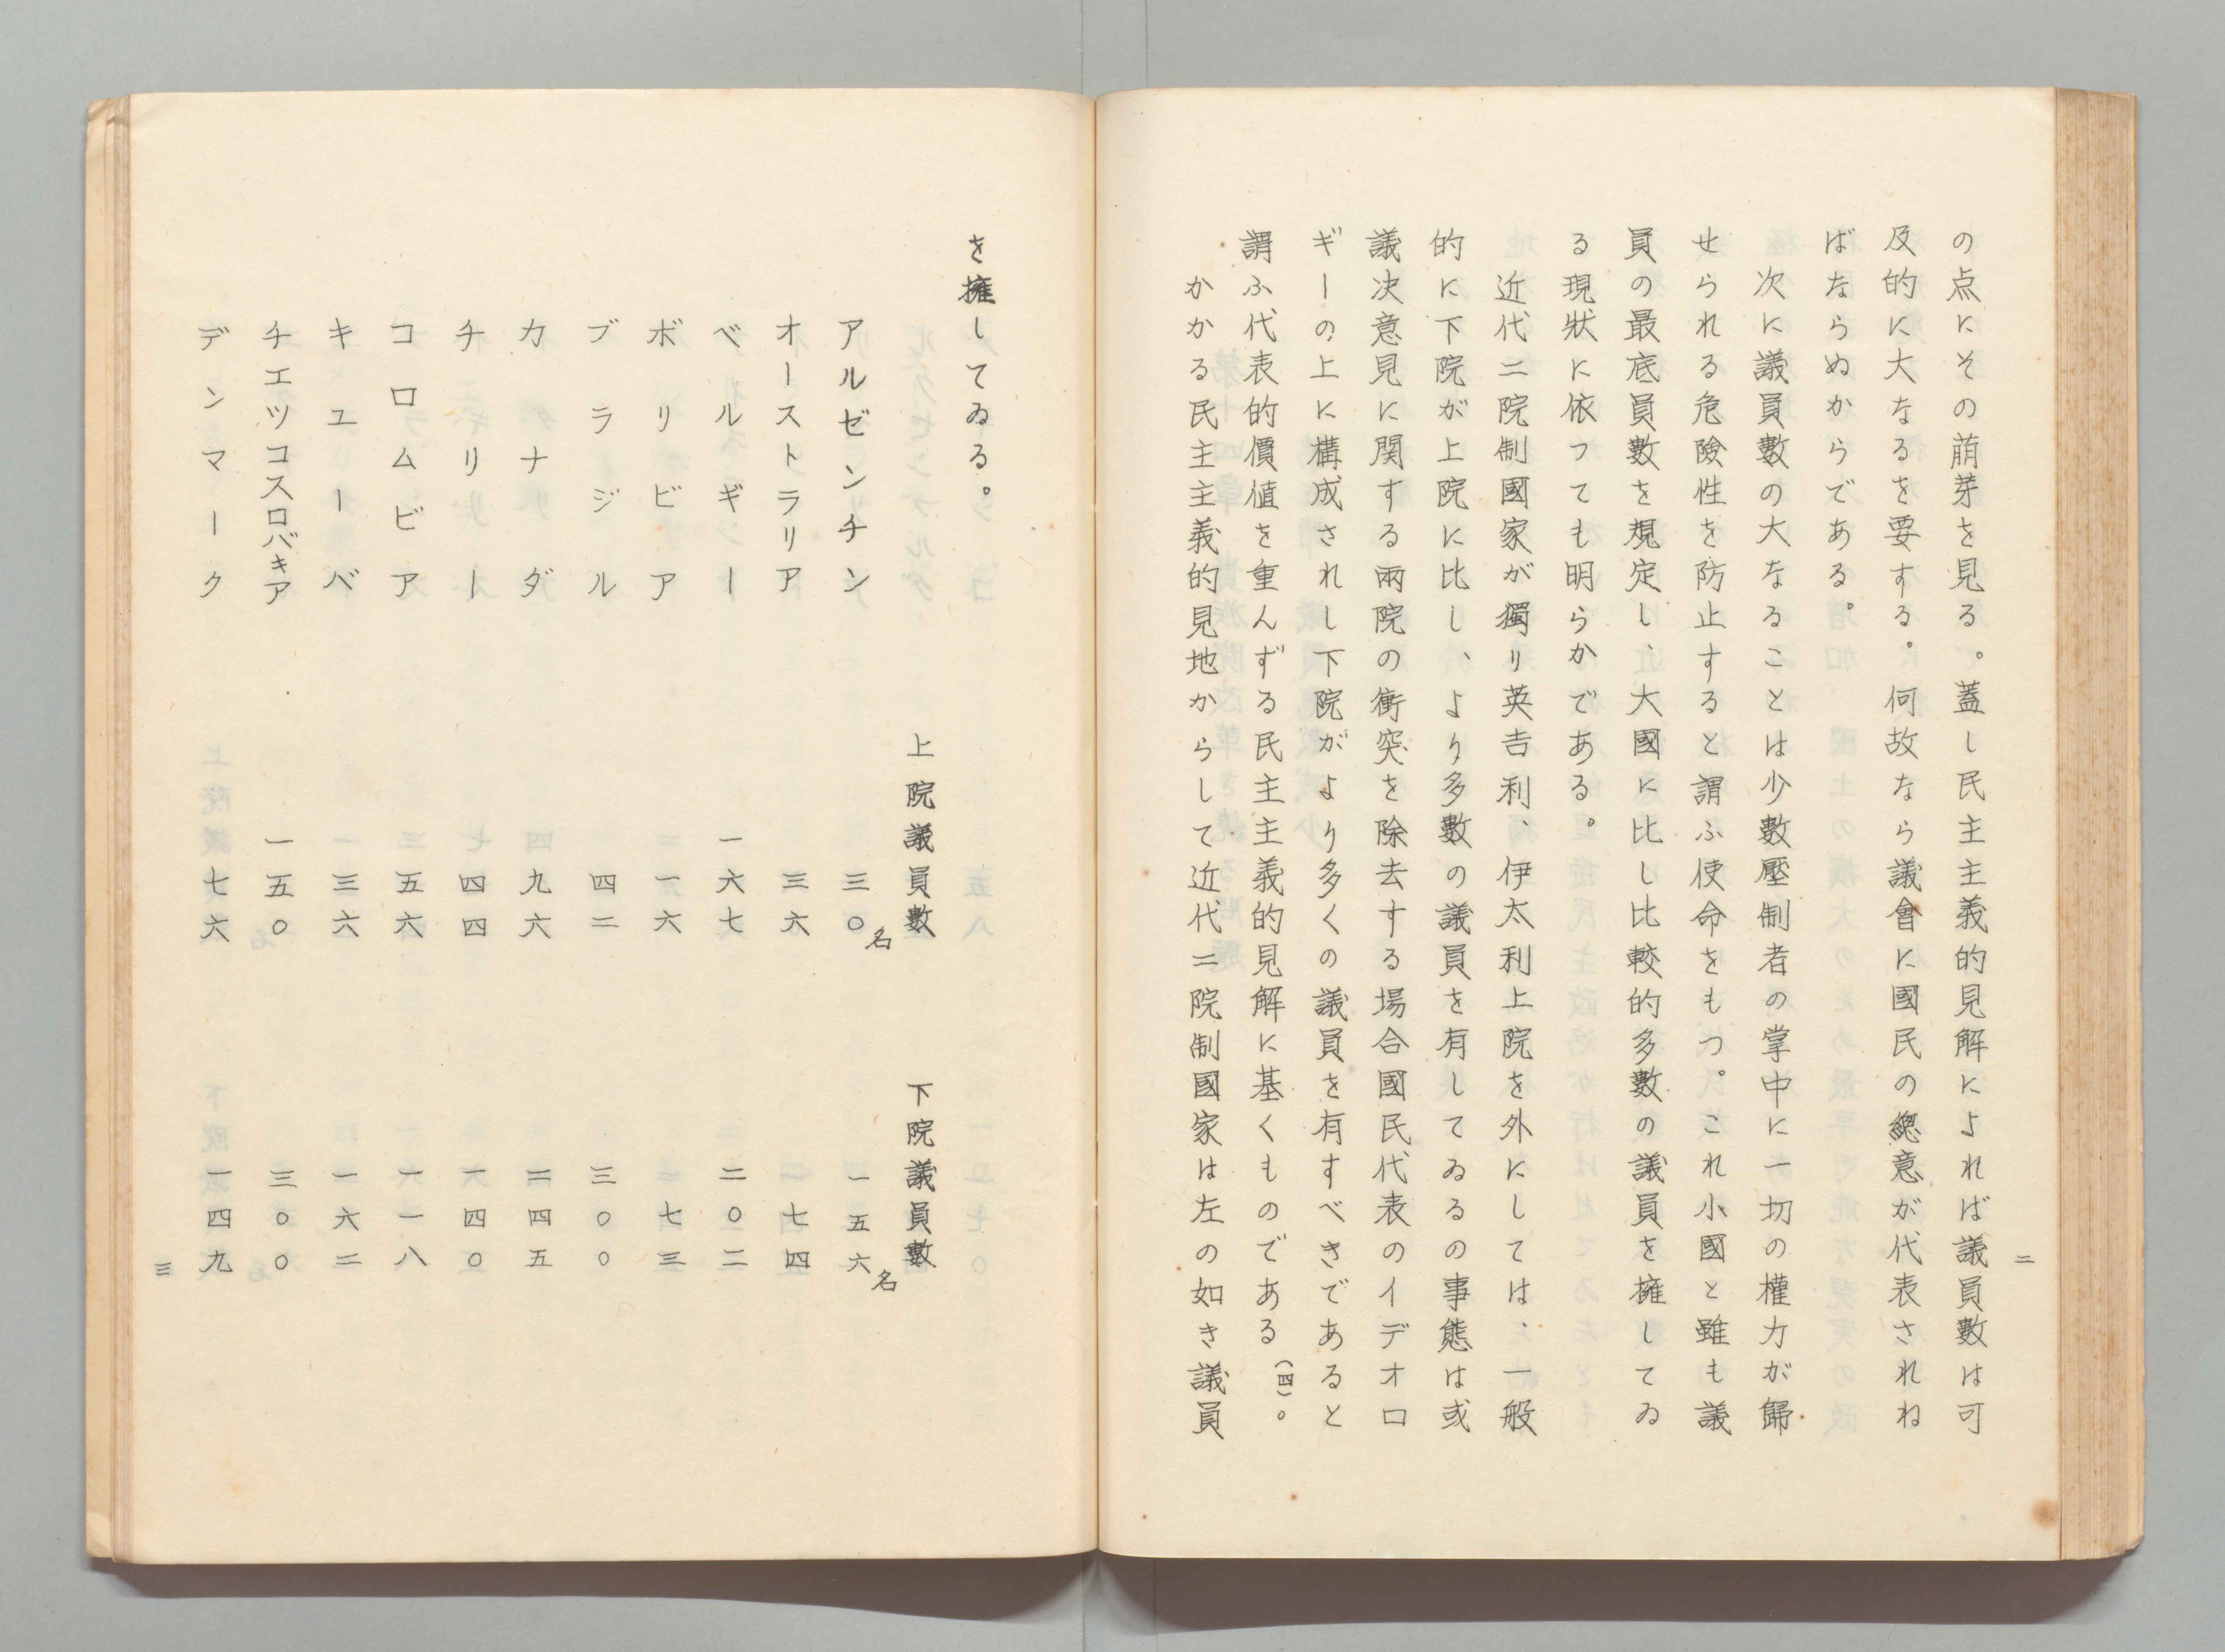 二
の点にその萠芽を見る。蓋し民主主義的見解によれば議員數は可
及的に大なるを要する。何故なら議會に國民の總意が代表されね
ばならぬからである。
次に議員數の大なることは少數壓制者の掌中に一切の權力が歸
せられる危險性を防止すると謂ふ使命をもつ。これ小國と雖も議
員の最底員數を規定し、大國に比し比較的多數の議員を擁してゐ
る現狀に依つても明らかである。
近代二院制國家が獨り英吉利、伊太利上院を外にしては、一般
的に下院が上院に比し、より多數の議員を有してゐるの事態は或
議决意見に関する兩院の衝突を除去する場合國民代表のイデオロ
ギーの上に構成されし下院がより多くの議員を有すべきであると
謂ふ代表的價値を重んずる民主主義的見解に基くものである(四)。
かかる民主主義的見地からして近代二院制國家は左の如き議員
を擁してゐる。
上院議員數 下院議員數
アルゼンチン 三〇名 一五六名
オーストラリア 三六 七四
ベルギー 一六七 二〇二
ボリビア 一六 七三
ブラジル 四二 三〇〇
カナダ 九六 二四五
チリー 四四 一四〇
コロムビア 五六 一一八
キユーバ 三六 一六二
チエツコスロバキア 一五〇 三〇〇
デンマーク 七六 一四九
三